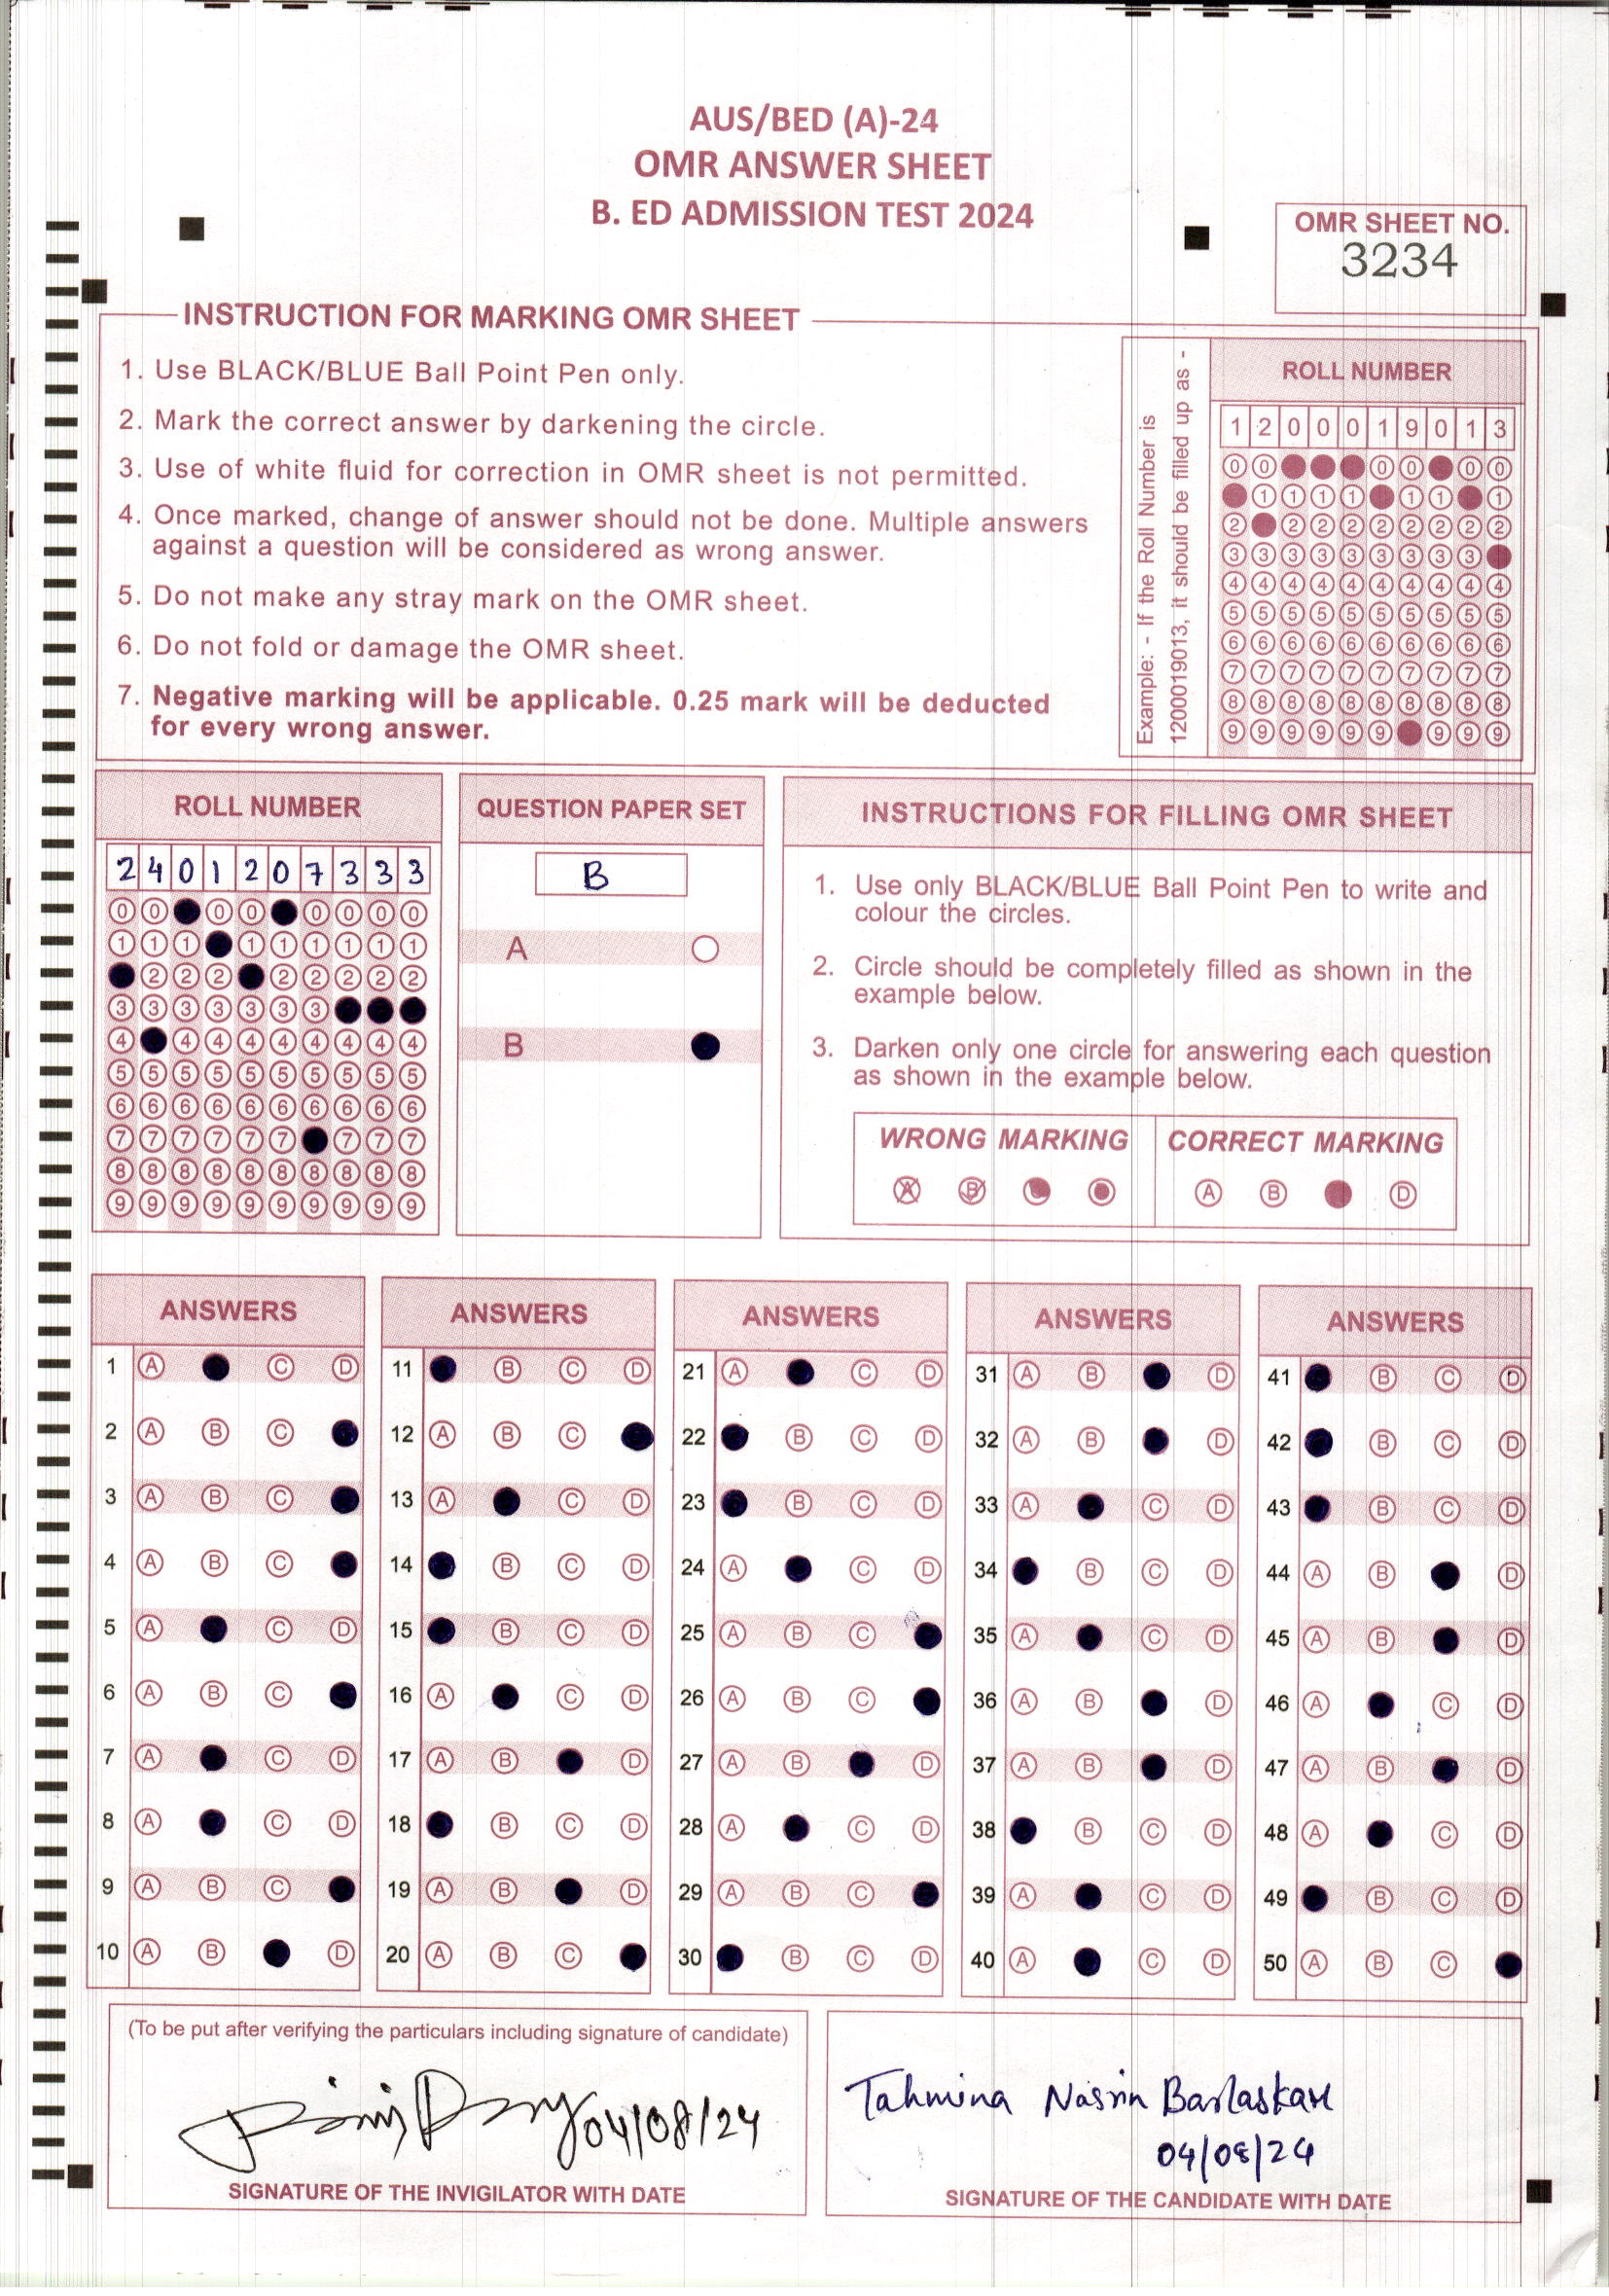 AUS/BED (A)-24
OMR ANSWER SHEET
B. ED ADMISSION TEST 2024
OMR SHEET NO.
3234
INSTRUCTION FOR MARKING OMR SHEET
1. Use BLACK/BLUE Ball Point Pen only.
2. Mark the correct answer by darkening the circle.
3. Use of white fluid for correction in OMR sheet is not permitted.
4. Once marked, change of answer should not be done. Multiple answers
against a question will be considered as wrong answer.
5. Do not make any stray mark on the OMR sheet.
6. Do not fold or damage the OMR sheet.
7. Negative marking will be applicable. 0.25 mark will be deducted
for every wrong answer.
Example: - If the Roll Number is
1200019013, it should be filled up as -
ROLL NUMBER
1 2 0 0 0 1 9 0 1 3
0 0 0 0 0 0
1 1 1 1 1 1 1
2 2 2 2 2 2 2 2 2
3 3 3 3 3 3 3 3 3
4 4 4 4 4 4 4 4 4 4
5 5 5 5 5 5 5 5 5 5
6 6 6 6 6 6 6 6 6 6
7 7 7 7 7 7 7 7 7 7
8 8 8 8 8 8 8 8 8 8
9 9 9 9 9 9 9 9 9
ROLL NUMBER
2 4 0 1 2 0 7 3 3 3
0 0 0 0 0 0 0 0
1 1 1 1 1 1 1 1 1
2 2 2 2 2 2 2 2
3 3 3 3 3 3 3
4 4 4 4 4 4 4 4 4
5 5 5 5 5 5 5 5 5 5
6 6 6 6 6 6 6 6 6 6
7 7 7 7 7 7 7 7 7
8 8 8 8 8 8 8 8 8 8
9 9 9 9 9 9 9 9 9 9
QUESTION PAPER SET
B
A
B
INSTRUCTIONS FOR FILLING OMR SHEET
1. Use only BLACK/BLUE Ball Point Pen to write and
colour the circles.
2. Circle should be completely filled as shown in the
example below.
3. Darken only one circle for answering each question
as shown in the example below.
WRONG MARKING
A B
CORRECT MARKING
A B D
ANSWERS
1 A C D
2 A B C
3 A B C
4 A B C
5 A C D
6 A B C
7 A C D
8 A C D
9 A B C
10 A B D
ANSWERS
11 B C D
12 A B C
13 A C D
14 B C D
15 B C D
16 A C D
17 A B D
18 B C D
19 A B D
20 A B C
ANSWERS
21 A C D
22 B C D
23 B C D
24 A C D
25 A B C
26 A B C
27 A B D
28 A C D
29 A B C
30 B C D
ANSWERS
31 A B D
32 A B D
33 A C D
34 B C D
35 A C D
36 A B D
37 A B D
38 B C D
39 A C D
40 A C D
ANSWERS
41 B C D
42 B C D
43 B C D
44 A B D
45 A B D
46 A C D
47 A B D
48 A C D
49 B C D
50 A B C
(To be put after verifying the particulars including signature of candidate)
04/08/24
SIGNATURE OF THE INVIGILATOR WITH DATE
Tahmina Nasrin Barlaskar
04/08/24
SIGNATURE OF THE CANDIDATE WITH DATE